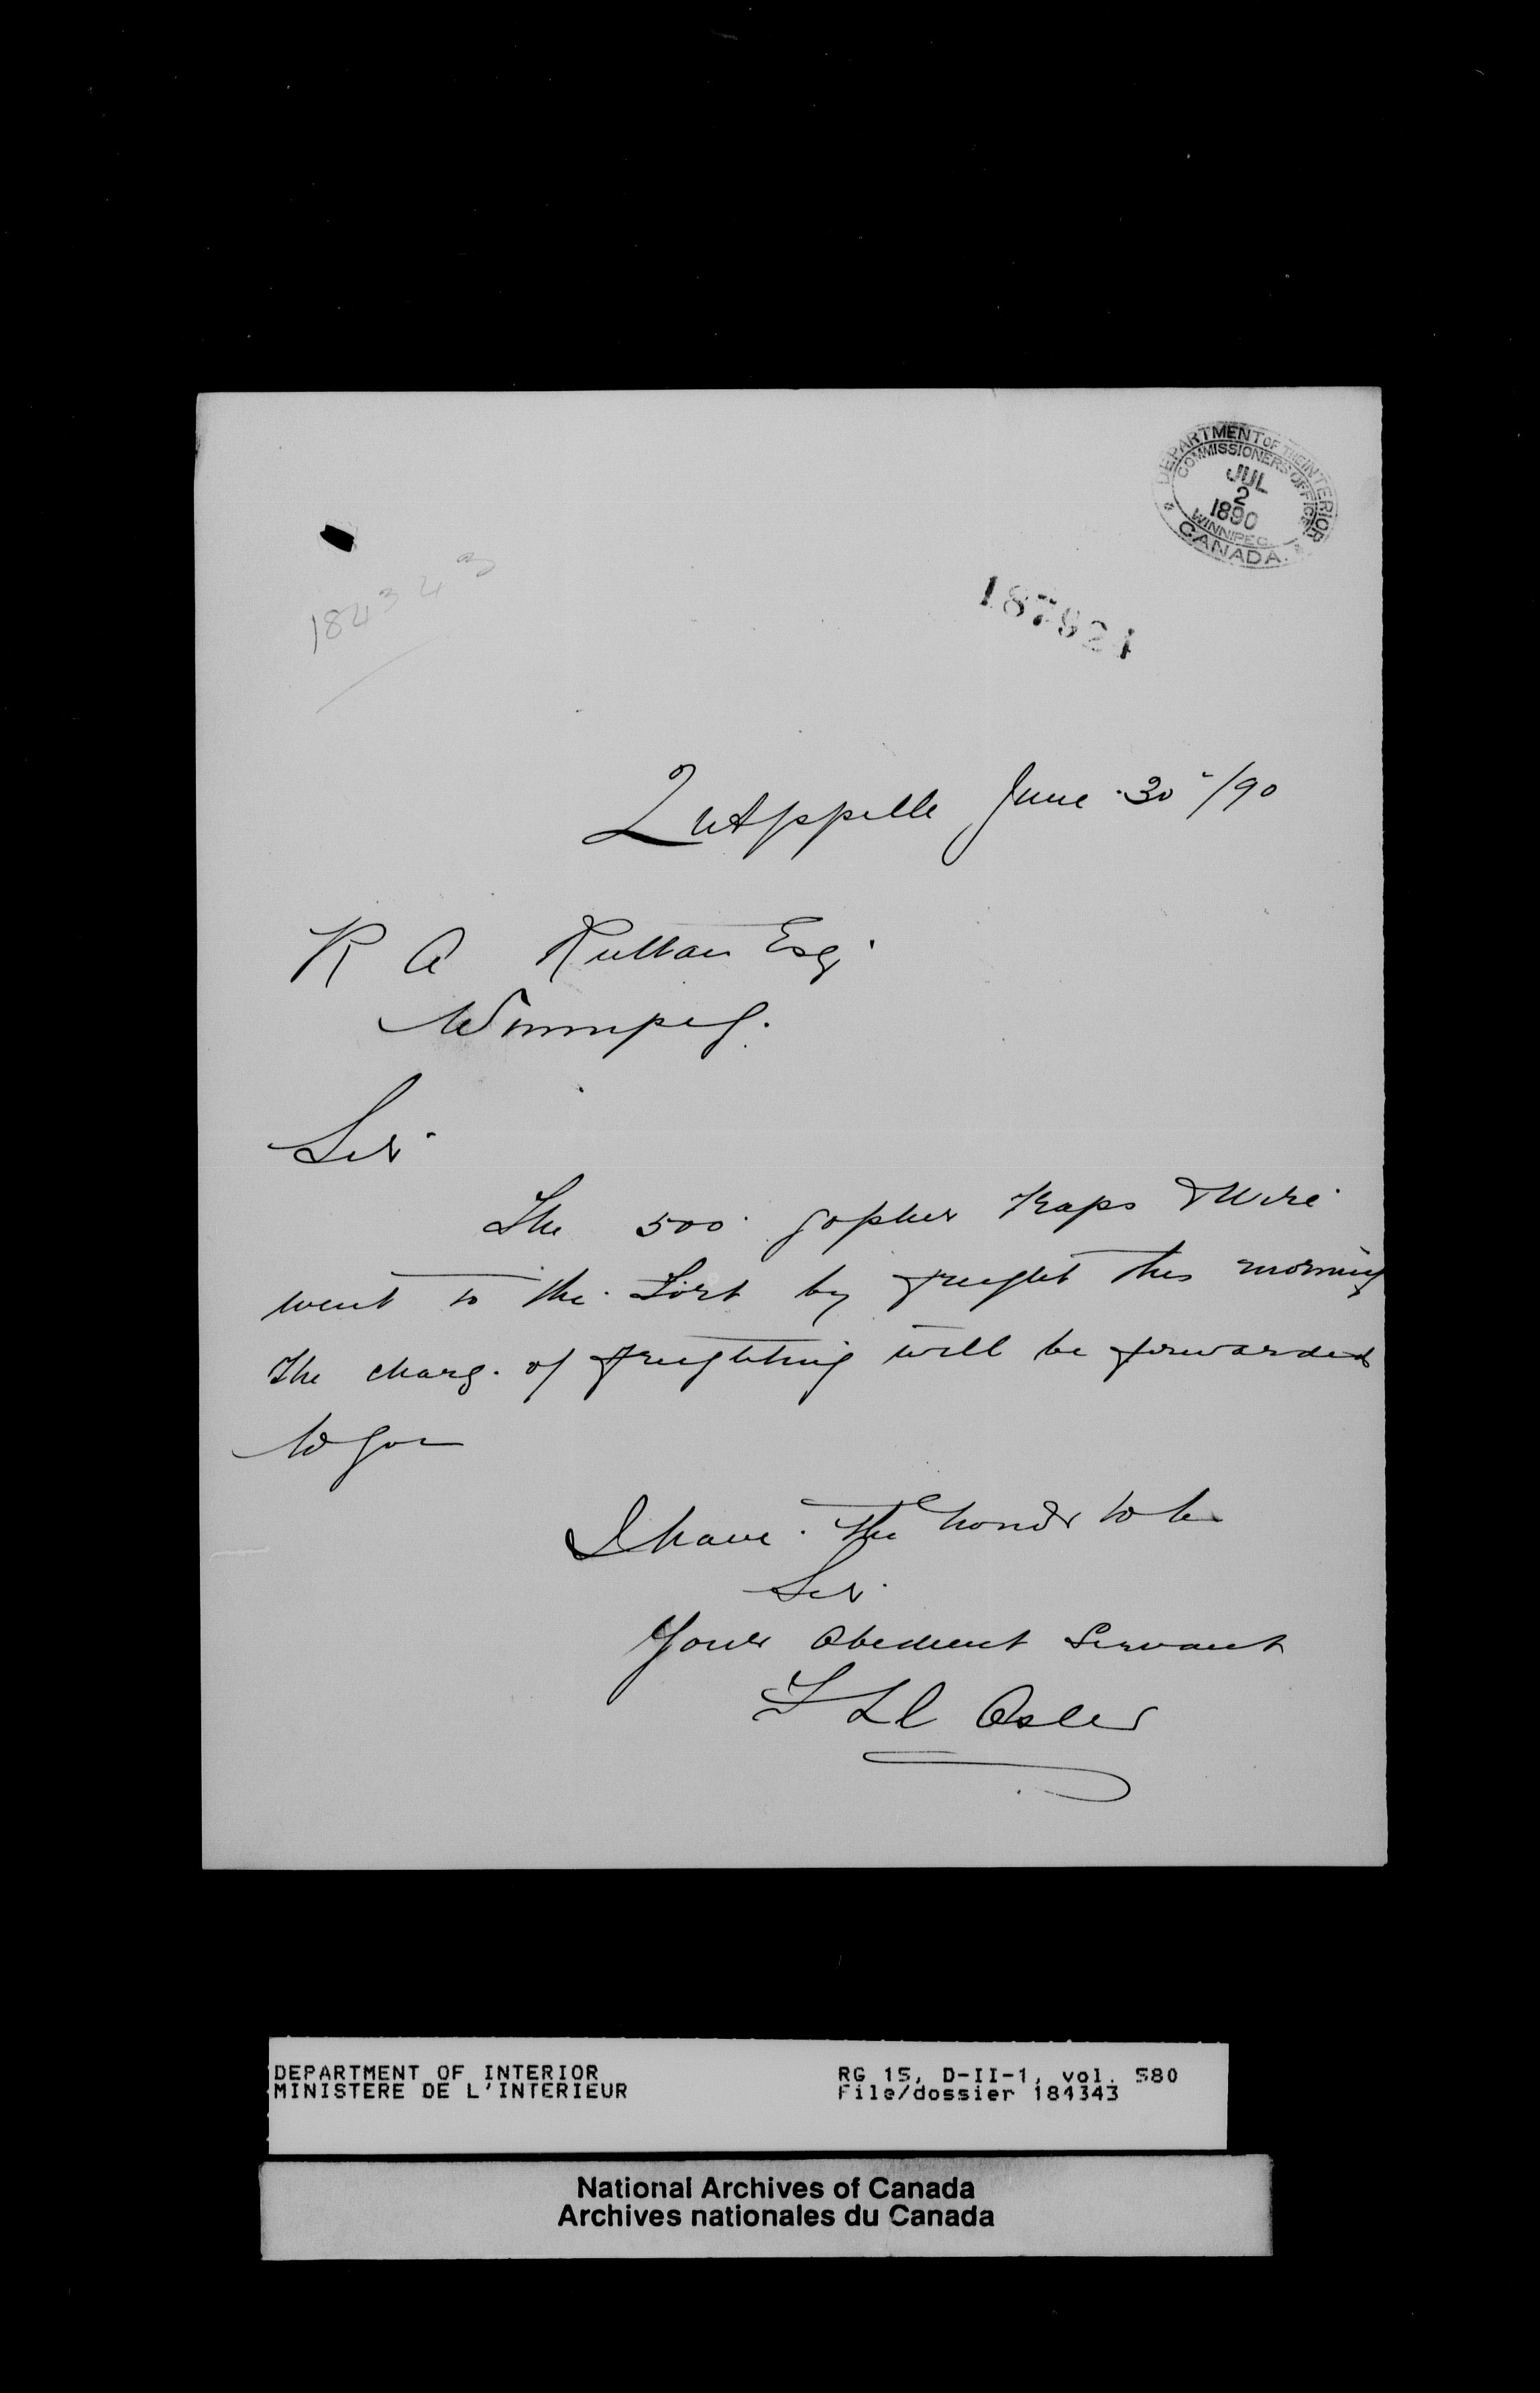 DEPARTMENT OF THE INTERIOR
COMMISSIONERS OFFICE
JUL
2
1890
WINNIPEG.
CANADA.
184343
187924
QuAppelle June 30/90
R A Ruttan Esq
Winnipeg.
Sir
The 500 gopher Traps & Wire
went to the Fort by freight this morning
The charg. of freighting will be forwarded
to you
I have the honor to be
Sir
Your Obedient Servant
F L C Osler
DEPARTMENT OF INTERIOR
MINISTERE DE L'INTERIEUR
RG 15, D-II-1, vol. 580
File/dossier 184343
National Archives of Canada
Archives nationales du Canada